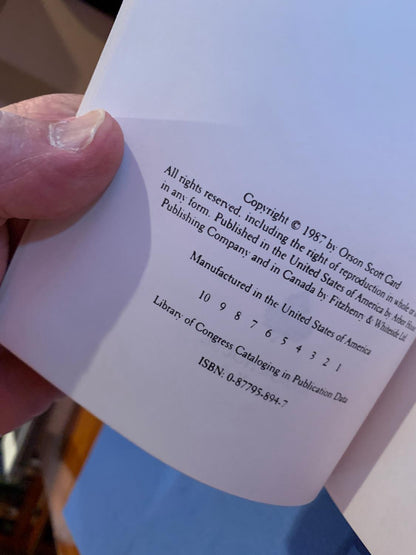 Copyright © 1987 by Orson Scott Card
All rights reserved, including the right of reproduction in whole or
in any form. Published in the United States of America by Arbor
Publishing Company and in Canada by Fitzhenry & Whiteside Ltd.
Manufactured in the United States of America
10 9 8 7 6 5 4 3 2 1
Library of Congress Cataloging in Publication Data
ISBN: 0-87795-894-7